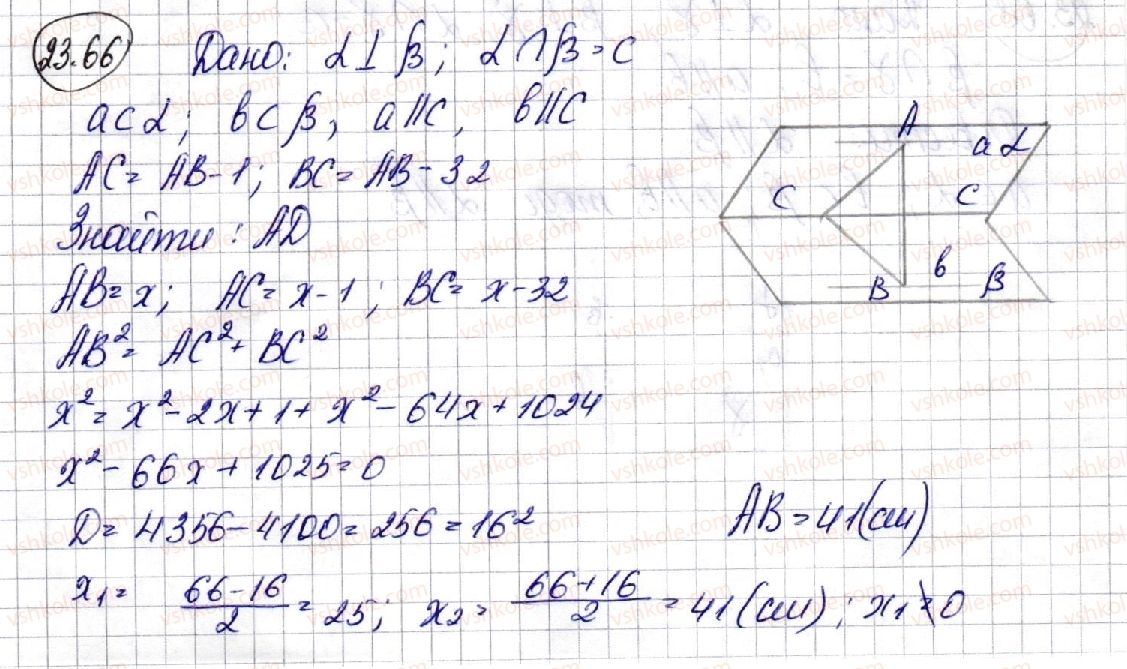 23.66 Дано: α⊥β; α∩β=c
a⊂α; b⊂β, a∥c, b∥c
AC= AB-1; BC= AB-32
Знайти: AD
AB=x; AC=x-1; BC=x-32
AB²= AC²+BC²
x²=x²-2x+1+x²-64x+1024
x²-66x+1025=0
D=4356-4100=256=16²
AB=41(см)
x₁= (66-16)/2 = 25; x₂= (66+16)/2 = 41(см);
A
a α
C C
B в β